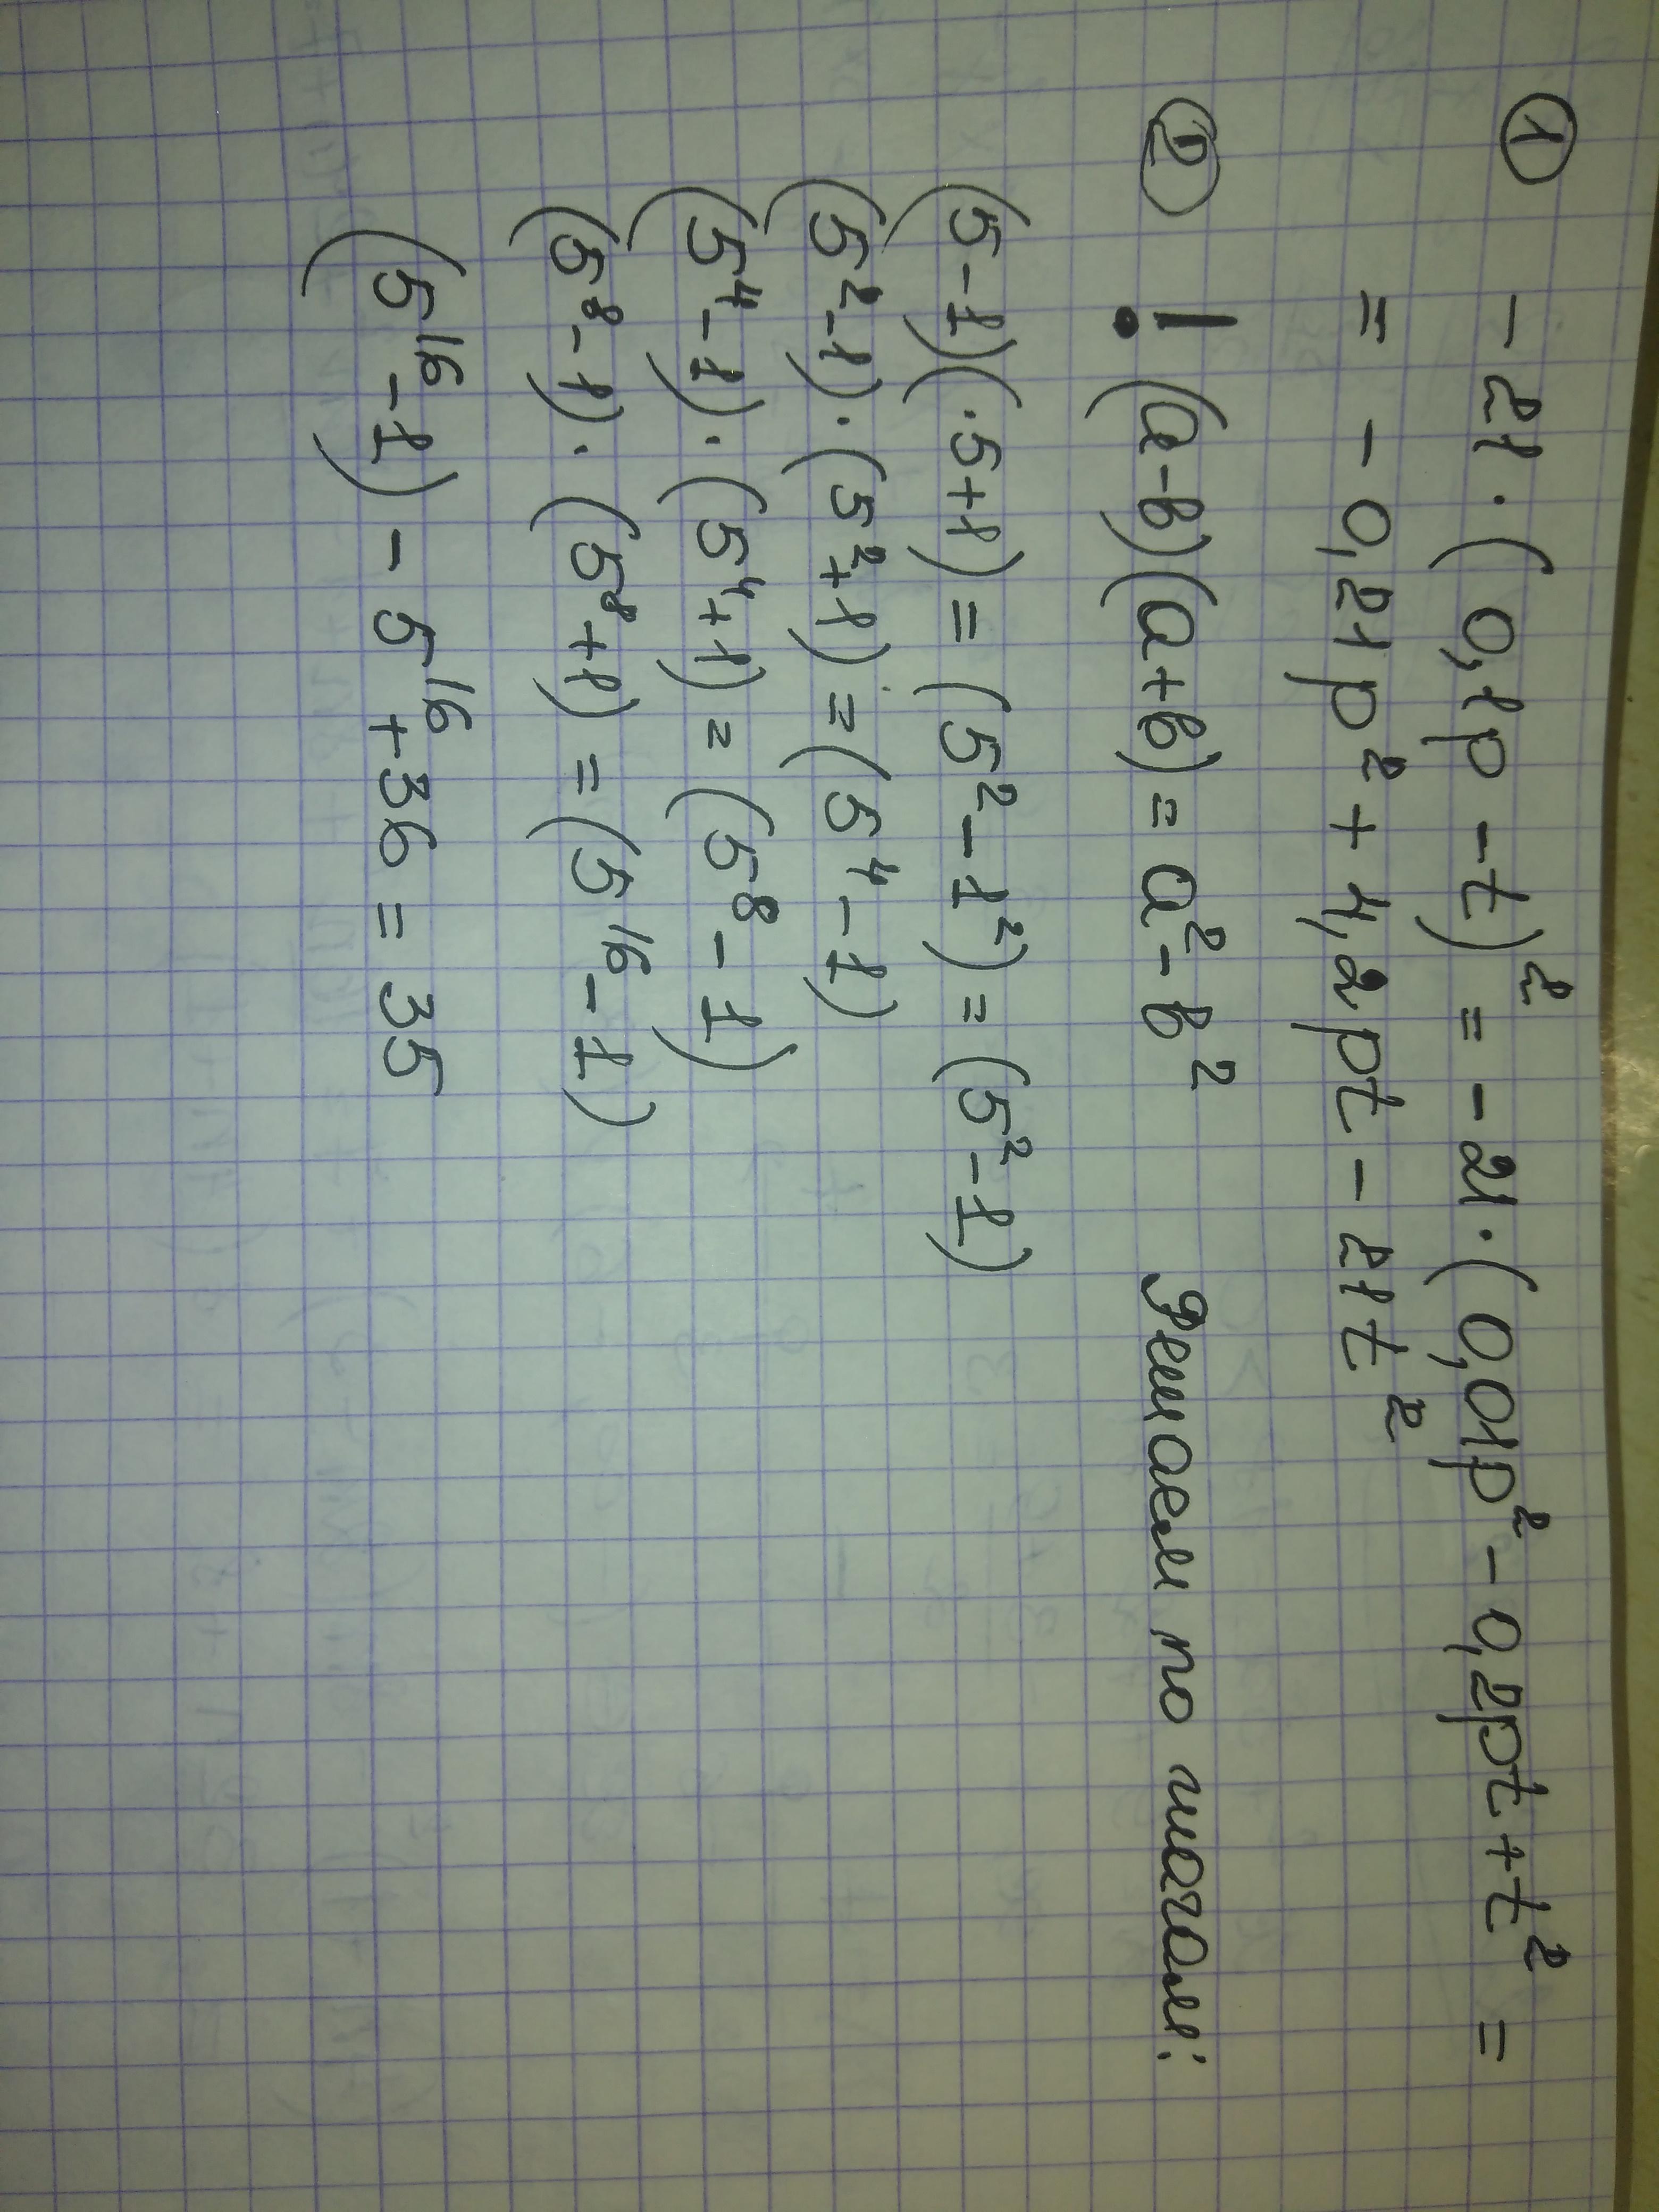 ① -21·(0,1p-t)² = -21·(0,01p²-0,2pt+t² =
= -0,21p²+4,2pt-21t²
② ! (a-b)(a+b)=a²-b² Решаем по шагам:
(5-1)(·5+1)=(5²-1²)=(5²-1)
(5²-1)·(5²+1)=(5⁴-1)
(5⁴-1)·(5⁴+1)=(5⁸-1)
(5⁸-1)·(5⁸+1)=(5¹⁶-1)
(5¹⁶-1)-5¹⁶+36=35